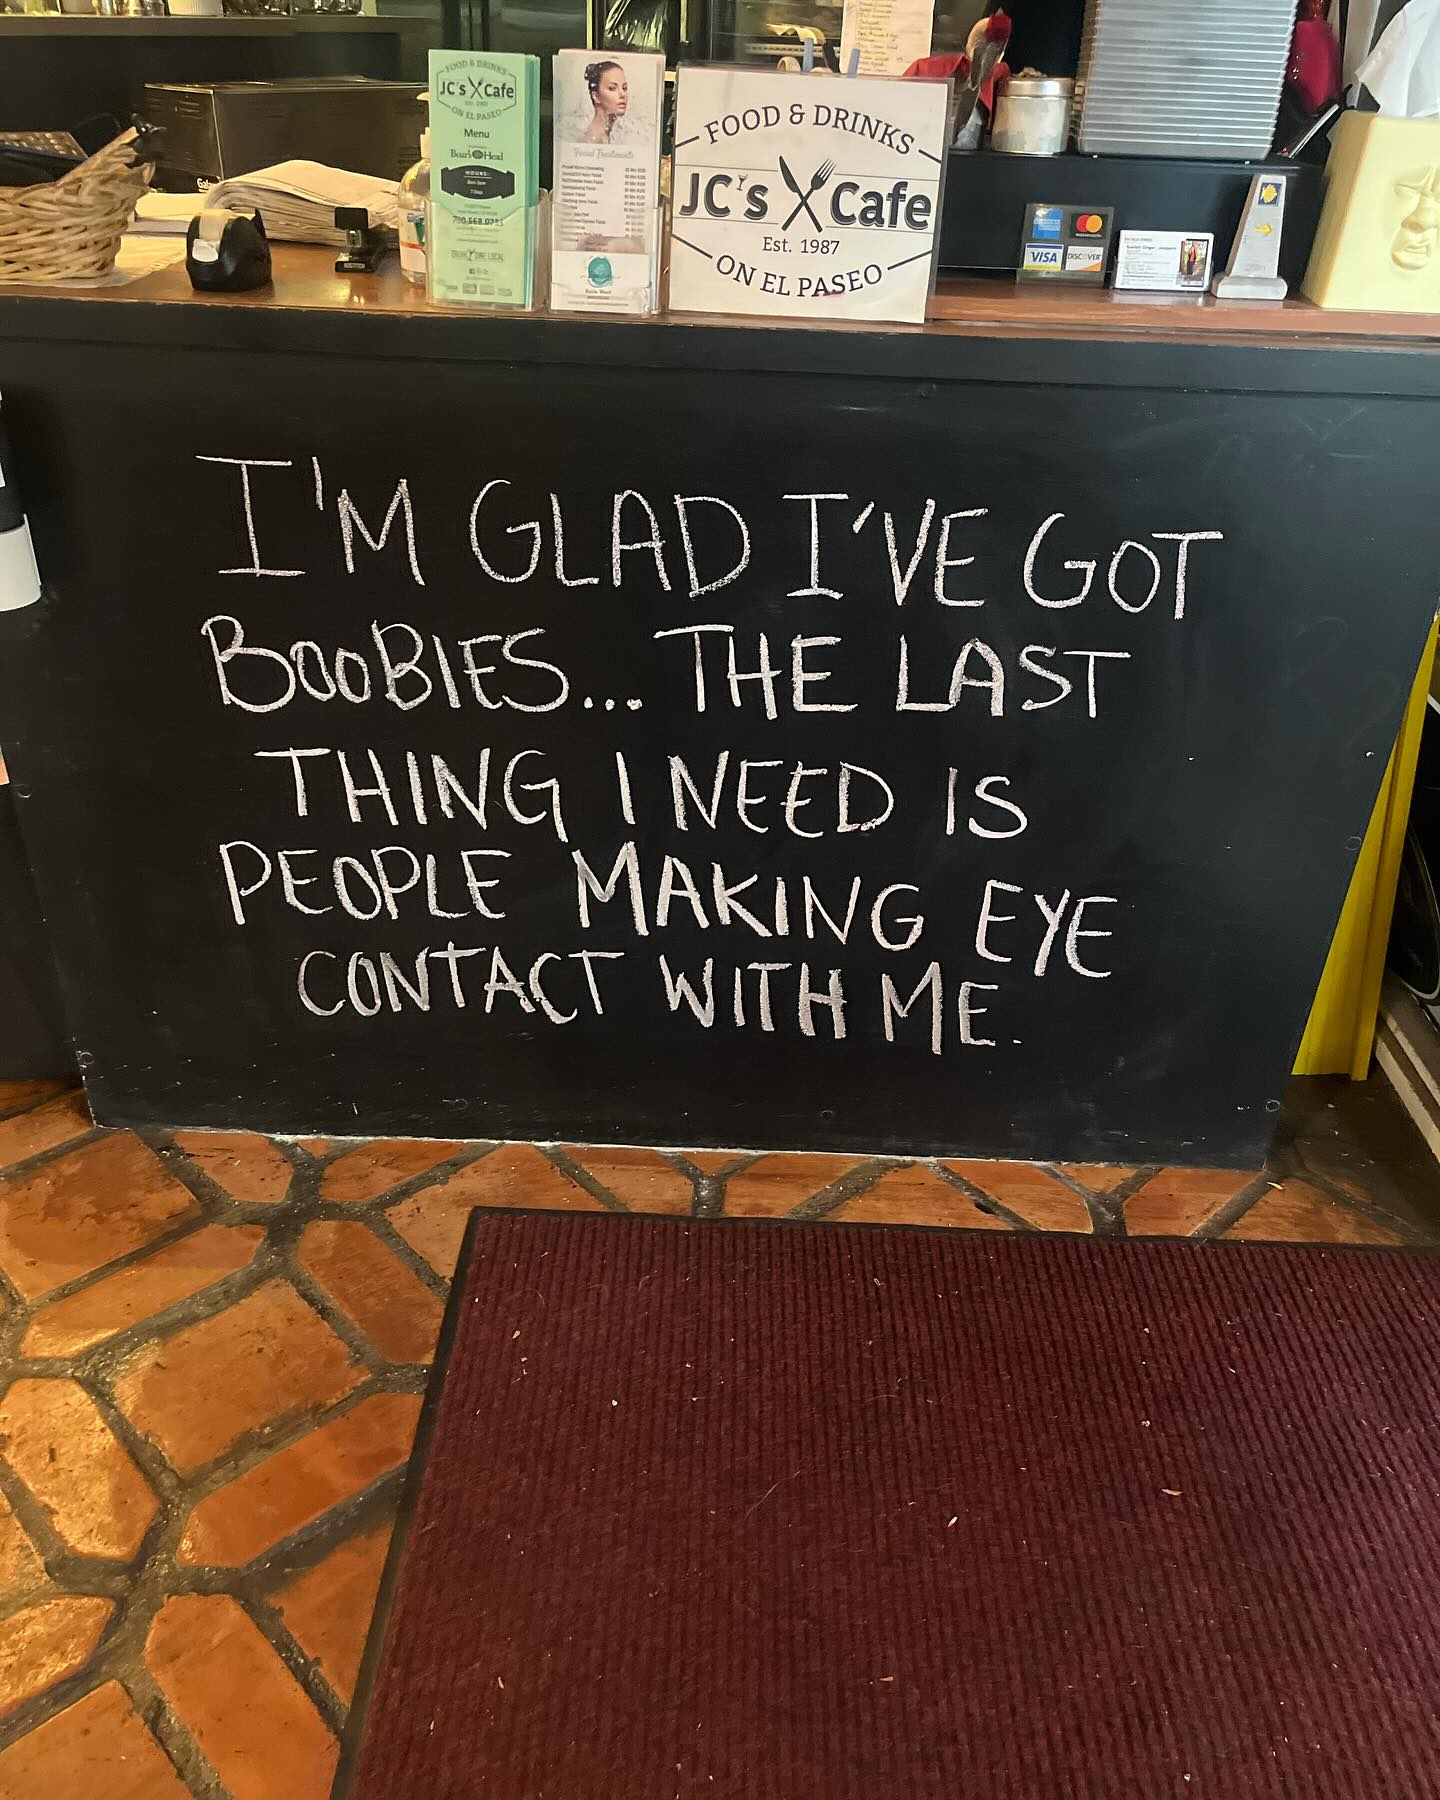 FOOD & DRINKS
JC's Cafe
Est. 1987
ON EL PASEO
FOOD & DRINKS
JC's Cafe
ON EL PASEO
Menu
Boar's Head
HOURS:
7 Days
DINE LOCAL
Facial Treatments
VISA
DISCOVER
I'M GLAD I'VE GOT
BOOBIES... THE LAST
THING I NEED IS
PEOPLE MAKING EYE
CONTACT WITH ME.